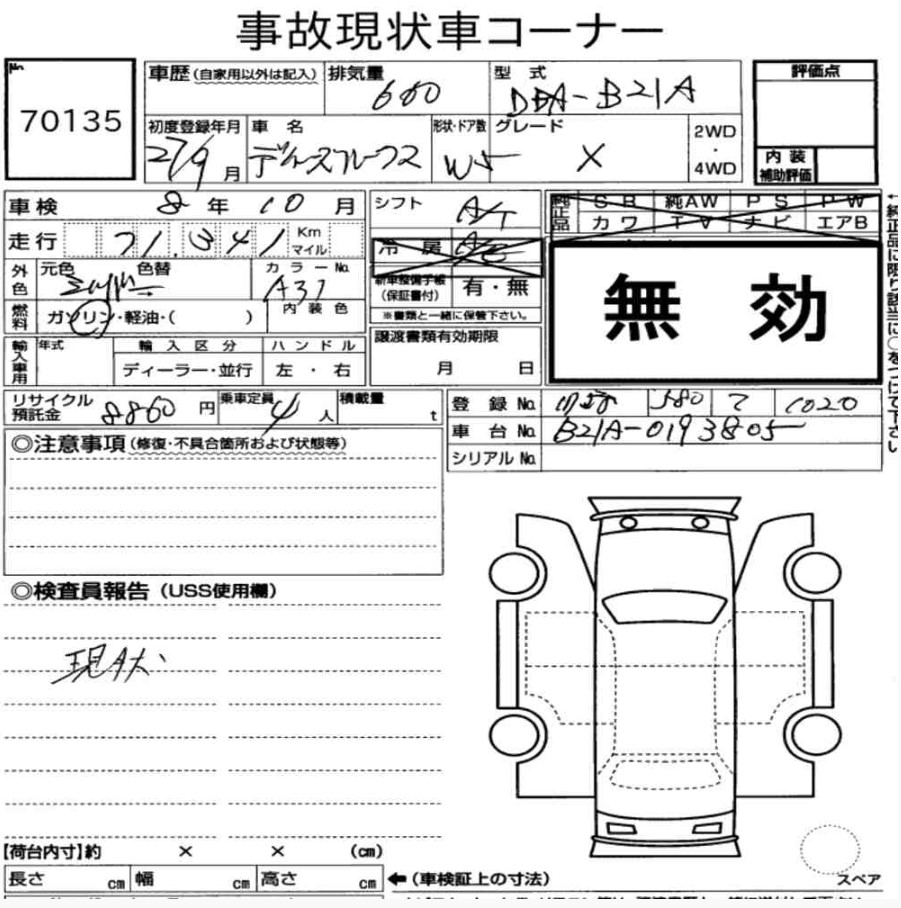 事故現状車コーナー
No. 70135
車歴 (自家用以外は記入) 排気量 660 型式 DBA-B21A
評価点
初度登録年月 27/9月 車名 デイズルークス 形状・ドア数 W5 グレード X 2WD・4WD
内装補助評価
車検 8年10月 シフト A/T
純正品 SR 純AW PS PW
カワ TV ナビ エアB
走行 71.341 Km マイル 冷房 A/C
無効
外色 元色 色替 カラーNo. A31
新車整備手帳(保証書付) 有・無
燃料 ガソリン・軽油・( ) 内装色
※書類と一緒に保管下さい。
輸入車用 年式 輸入区分 ハンドル
ディーラー・並行 左・右
譲渡書類有効期限
月 日
←純正品に限り該当に○をつけて下さい
リサイクル預託金 8860円 乗車定員 4人 積載量 t
登録No. 580 1020
車台No. B21A-0193805
シリアルNo.
◎注意事項(修復・不具合箇所および状態等)
◎検査員報告(USS使用欄)
現状
【荷台内寸】約 × × (cm)
長さ cm 幅 cm 高さ cm ←(車検証上の寸法)
スペア